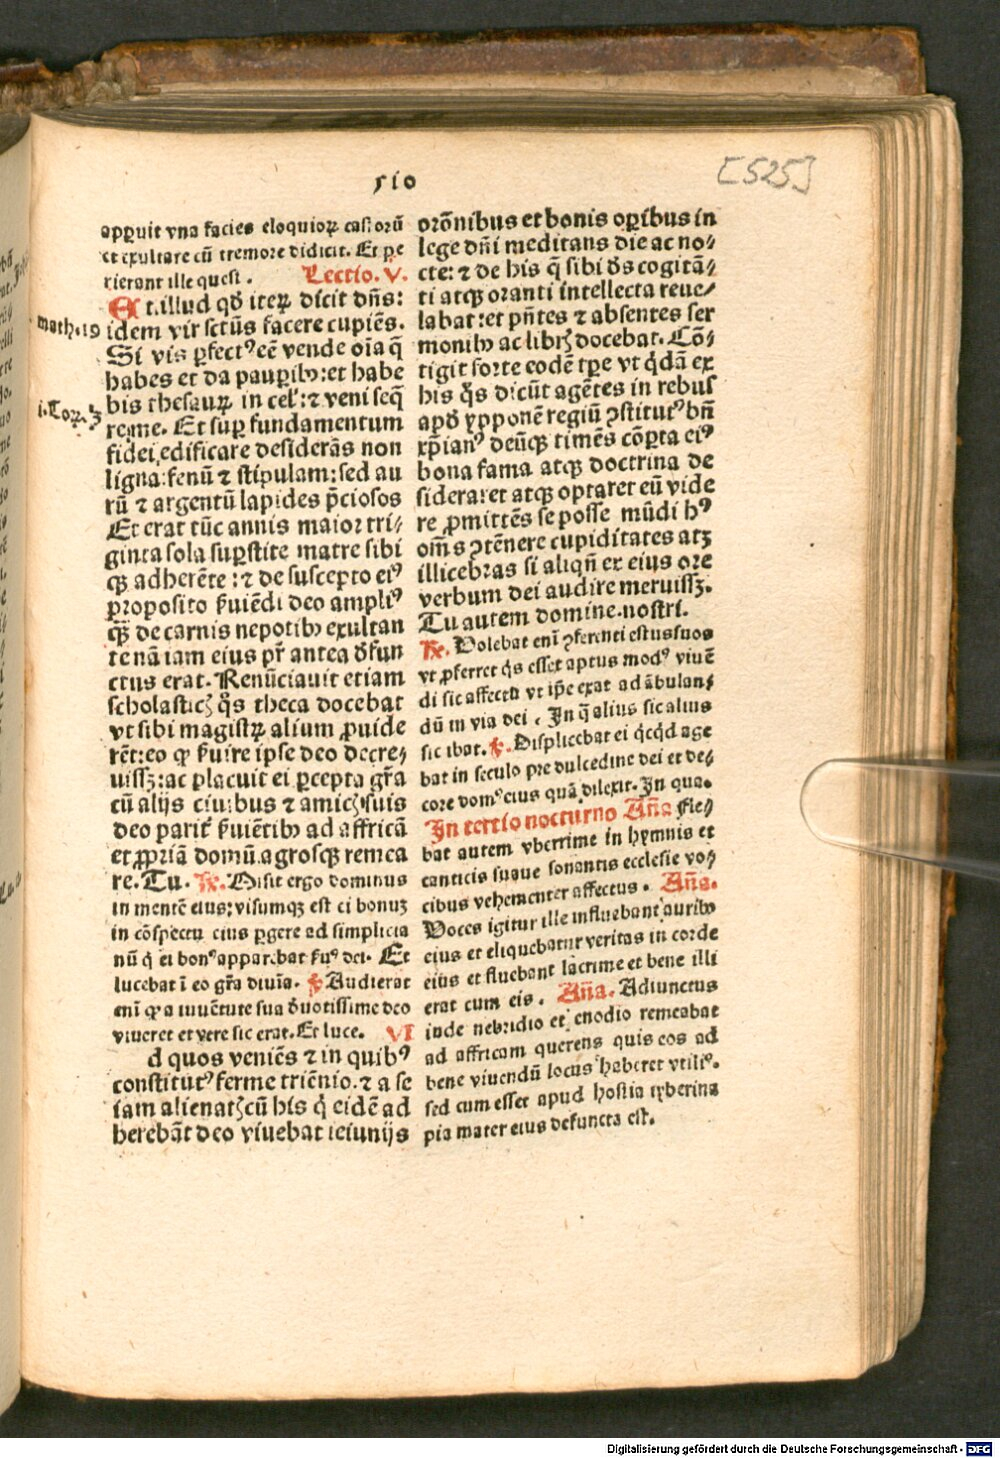 510
[525]
appuit vna facies eloquioꝝ castorū
et exultare cū tremore didicit. Et pe
rierant ille quest .
Lectio. V.
At illud qđ iteꝝ dicit dn̄s:
math.19
idem vir sct̄us facere cupiēs.
Si vis ꝑfectꝰ eē vende oīa q̄
habes et da pauꝑibꝫ: et habe
bis thesauꝝ in cel': ⁊ veni seq̄
i.Coꝝ.3
re me. Et suꝑ fundamentum
fidei edificare desiderās non
ligna: fenū ⁊ stipulam: sed au
rū ⁊ argentū lapides p̄ciosos
Et erat tūc annis maior tri⸗
ginta sola suꝑstite matre sibi
qꝫ adherēte: ⁊ de suscepto eiꝰ
proposito ẜuiēdi deo ampliꝰ
qꝫ̄ de carnis nepotibꝫ exultan
te nā iam eius pr̄ antea đfun
ctus erat. Renūciauit etiam
scholasticꝭ q̊s theca docebat
vt sibi magistꝝ alium ꝓuide
rēt: eo ꝙ ẜuire ipse deo decre⸗
uissꝫ: ac placuit ei ꝑcepta gr̄a
cū alijs ciuibus ⁊ amicꝭ suis
deo parit̄ ẜuiētibꝫ ad affricā
et ꝓpriā domū. agrosqꝫ remea
re. Tu. ℞. Misit ergo dominus
in mentē eius: visumqꝫ est ei bonuꝫ
in cōspectu eius ꝑgere ad simplicia
nū q̇ ei bonꝰ apparebat ẜuꝰ dei. Et
lucebat ī eo gr̄a diuīa. ℣. Audierat
enī ꝙ a iuuētute sua đuotissime deo
viueret et vere sic erat. Et luce. VI
d quos veniēs ⁊ in quibꝰ
constitutꝰ ferme triēnio. ⁊ a se
iam alienatꝭ cū his q̇ eidē ad
herebāt deo viuebat ieiunijs
orōnibus et bonis oꝑibus in
lege dn̄i meditans die ac no⸗
cte: ⁊ de his q̄ sibi đs cogitā⸗
ti atqꝫ oranti intellecta reue⸗
labat: et pn̄tes ⁊ absentes ser
monibꝫ ac librꝭ docebat. Cō⸗
tigit forte eodē tꝑe vt q̇dā ex
his q̊s dicūt agētes in rebus
apđ yppōnē regiū ꝯstitutꝰ bn̄
xp̄ianꝰ deūqꝫ timēs cōperta eiꝰ
bona fama atqꝫ doctrina de
sideraret atqꝫ optaret eū vide
re ꝓmittēs se posse mūdi hꝰ
om̄s ꝯtēnere cupiditates atꝫ
illicebras si aliqn̄ ex eius ore
verbum dei audire meruissꝫ.
Tu autem domine. nostri.
℞. Volebat enī ꝯferenti estus suos
vt ꝓferret q̊s esset aptus modꝰ viuē
di sic affecto vt ip̄e erat ad ābulan⸗
dū in via dei . In q̄ alius sic alius
sic ibat. ℣. Displicebat ei q̇cq̇d age
bat in seculo pre dulcedine dei et de⸗
core domꝰ eius quā dilexit. In qua.
In tertio nocturno Añā Fle⸗
bat autem vberrime in hymnis et
canticis suaue sonantis ecclesie vo⸗
cibus vehementer affectus . Añā.
Voces igitur ille influebant auribꝫ
eius et eliquebatur veritas in corde
eius et fluebant lacrime et bene illi
erat cum eis . Añā. Adiunctus
inde nebridio et enodio remeabat
ad affricam querens quis eos ad
bene viuendū locus haberet vtiliꝰ.
sed cum esset apud hostia tyberina
pia mater eius defuncta est.
Digitalisierung gefördert durch die Deutsche Forschungsgemeinschaft - DFG